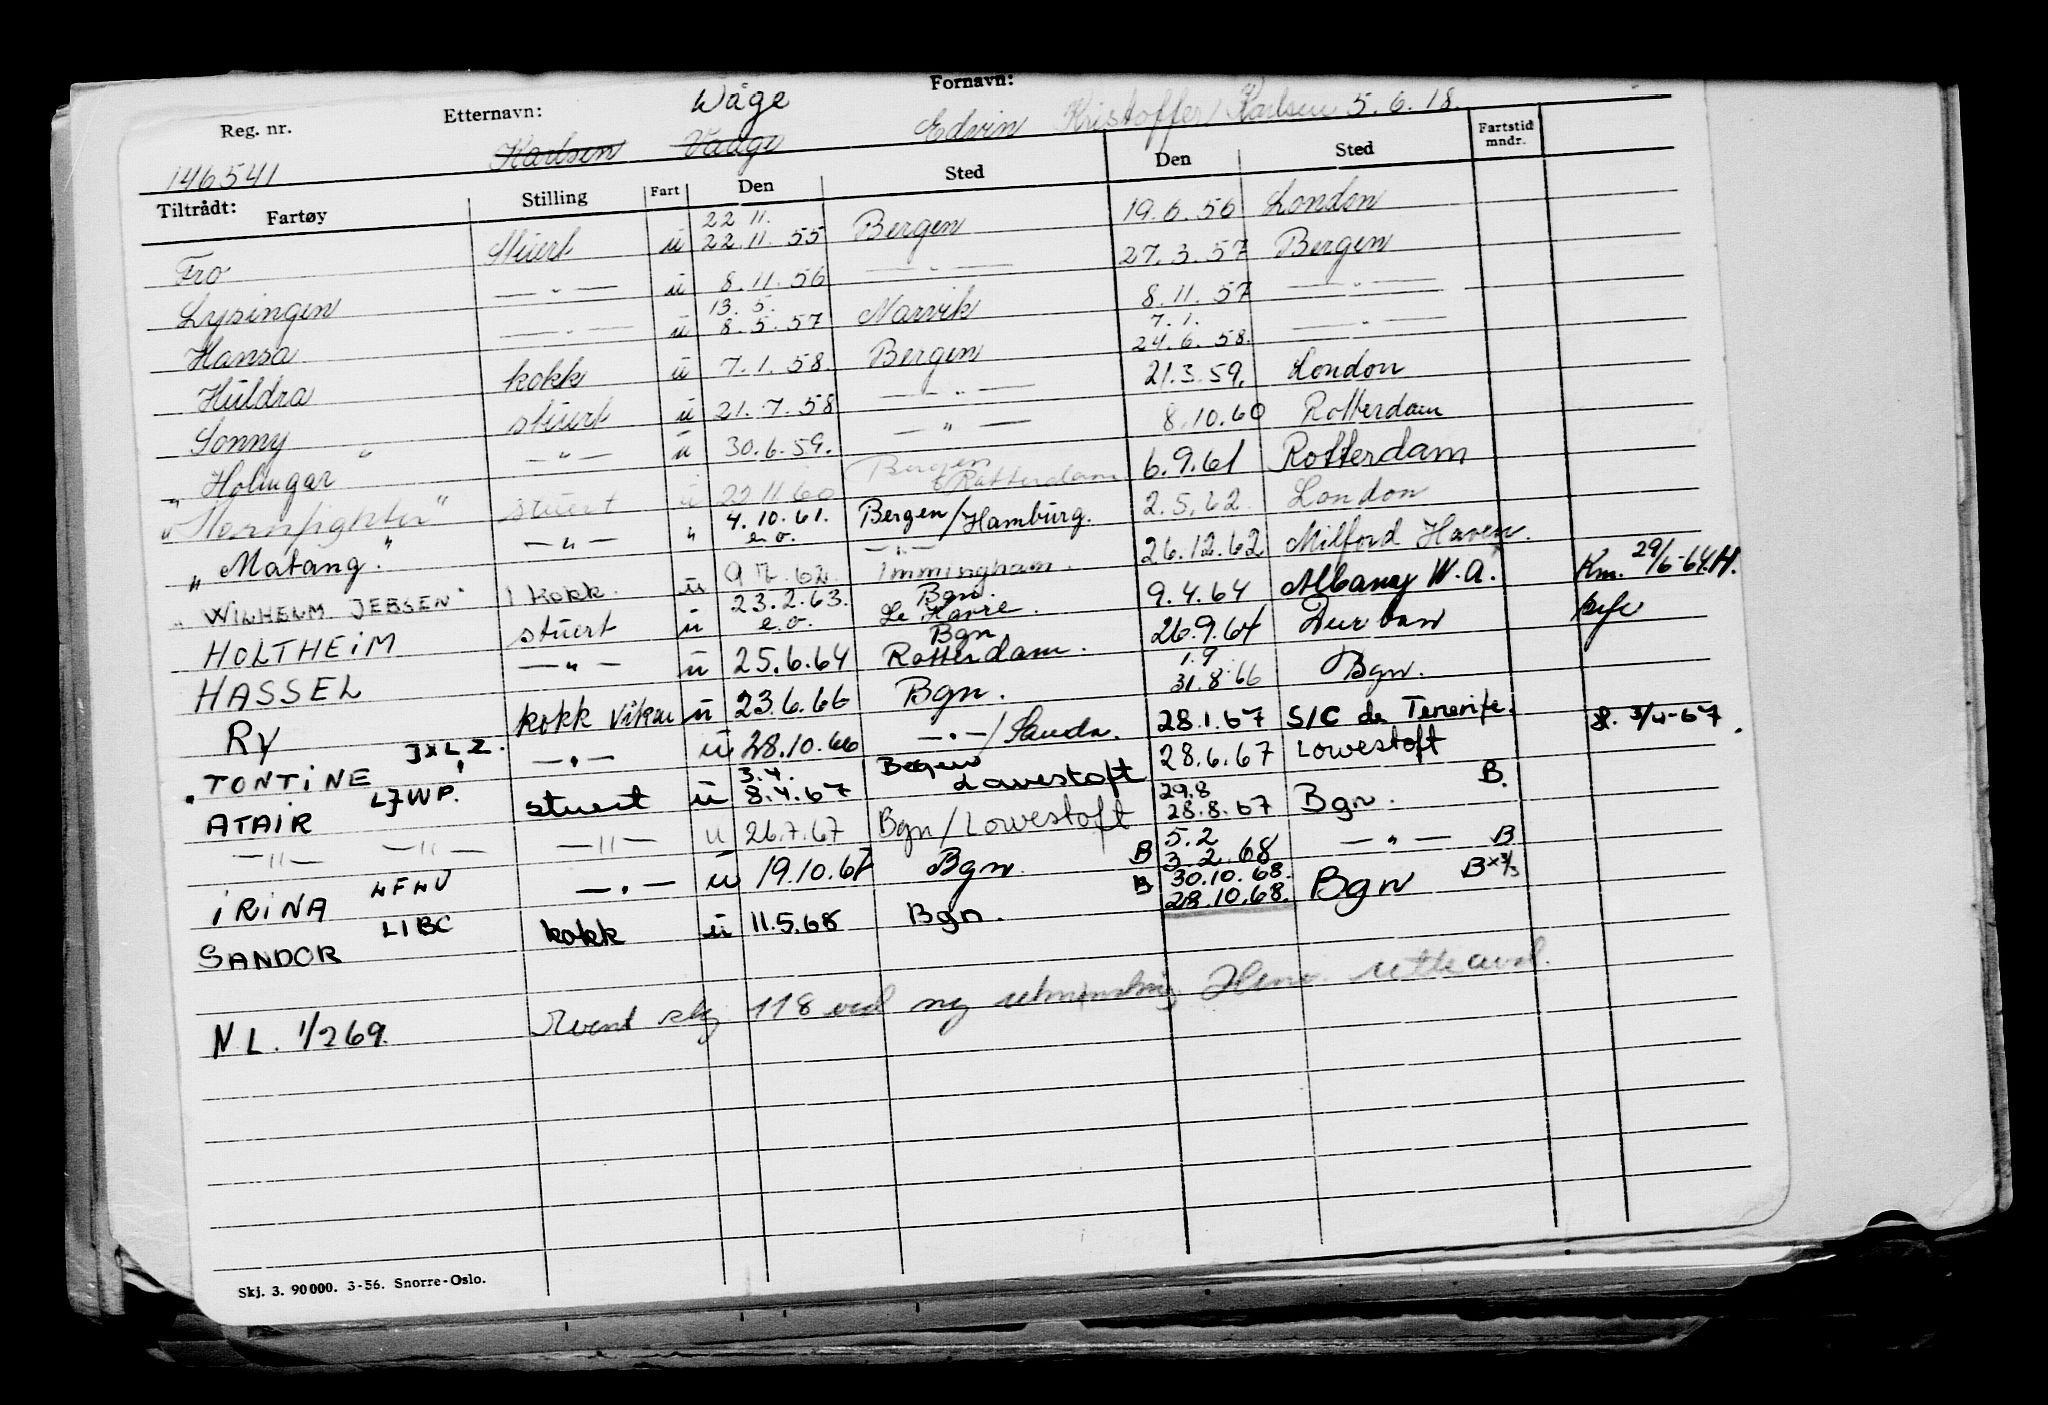 Reg. nr. Etternavn: Wåge Fornavn:
146541 Karlsen Vaage Edvin Kristoffer / Karlsen 5.6.18.
Tiltrådt: Fartøy Stilling Fart Den Sted Den Sted Fartstid mndr.
Fro Stuert ü 22 11. 22.11.55 Bergen 19.6.56 London
Lysingen —„— ü 8.11.56 —„— 27.3.57 Bergen
Hansa —„— ü 13.5. 8.5.57 Narvik 8.11.57 —„—
Huldra kokk ü 7.1.58. Bergen 7.1. 24.6.58. —„—
Sonny stuert ü 21.7.58 —„— 21.3.59. London
„ Holmgar „ —„— ü 30.6.59. —„— 8.10.60 Rotterdam
„ Stuert ü 22.11.60 Bergen Rotterdam 6.9.61 Rotterdam
„ Matang." —„— „ 4.10.61. e.o. Bergen/Hamburg. 2.5.62. London
„ WILHELM JEBSEN" 1 kokk. ü —„— Immingham. 26.12.62 Milford Haven.
HOLTHEIM stuert ü 23.2.63. e.o. Bgn. Le Havre. 9.4.64 Albany W.A. Km. 29/6-64.H.
HASSEL —„— ü 25.6.64 Bgn Rotterdam. 26.9.64 Durban
RY kokk vikar ü 23.6.66 Bgn. 1.9 31.8.66 Bgn.
„ TONTINE JXLZ. —„— ü 28.10.66 —„—/Sauda. 28.1.67 S/C de Tenerife. 3/4-67.
ATAIR LJWP. stuert ü 3.4. 8.4.67 Bergen Lowestoft 28.6.67 Lowestoft
—„— —„— —„— ü 26.7.67 Bgn/Lowestoft 29.8 28.8.67 Bgn. B.
IRINA LFHU —„— ü 19.10.67 Bgn B 5.2 3.2.68 —„— B
SANDOR LIBC kokk ü 11.5.68 Bgn. B 30.10.68. 28.10.68. Bgn B x 3/3
N L. 1/2 69. 118 ved ny
Skj. 3. 90000. 3-56. Snorre-Oslo.